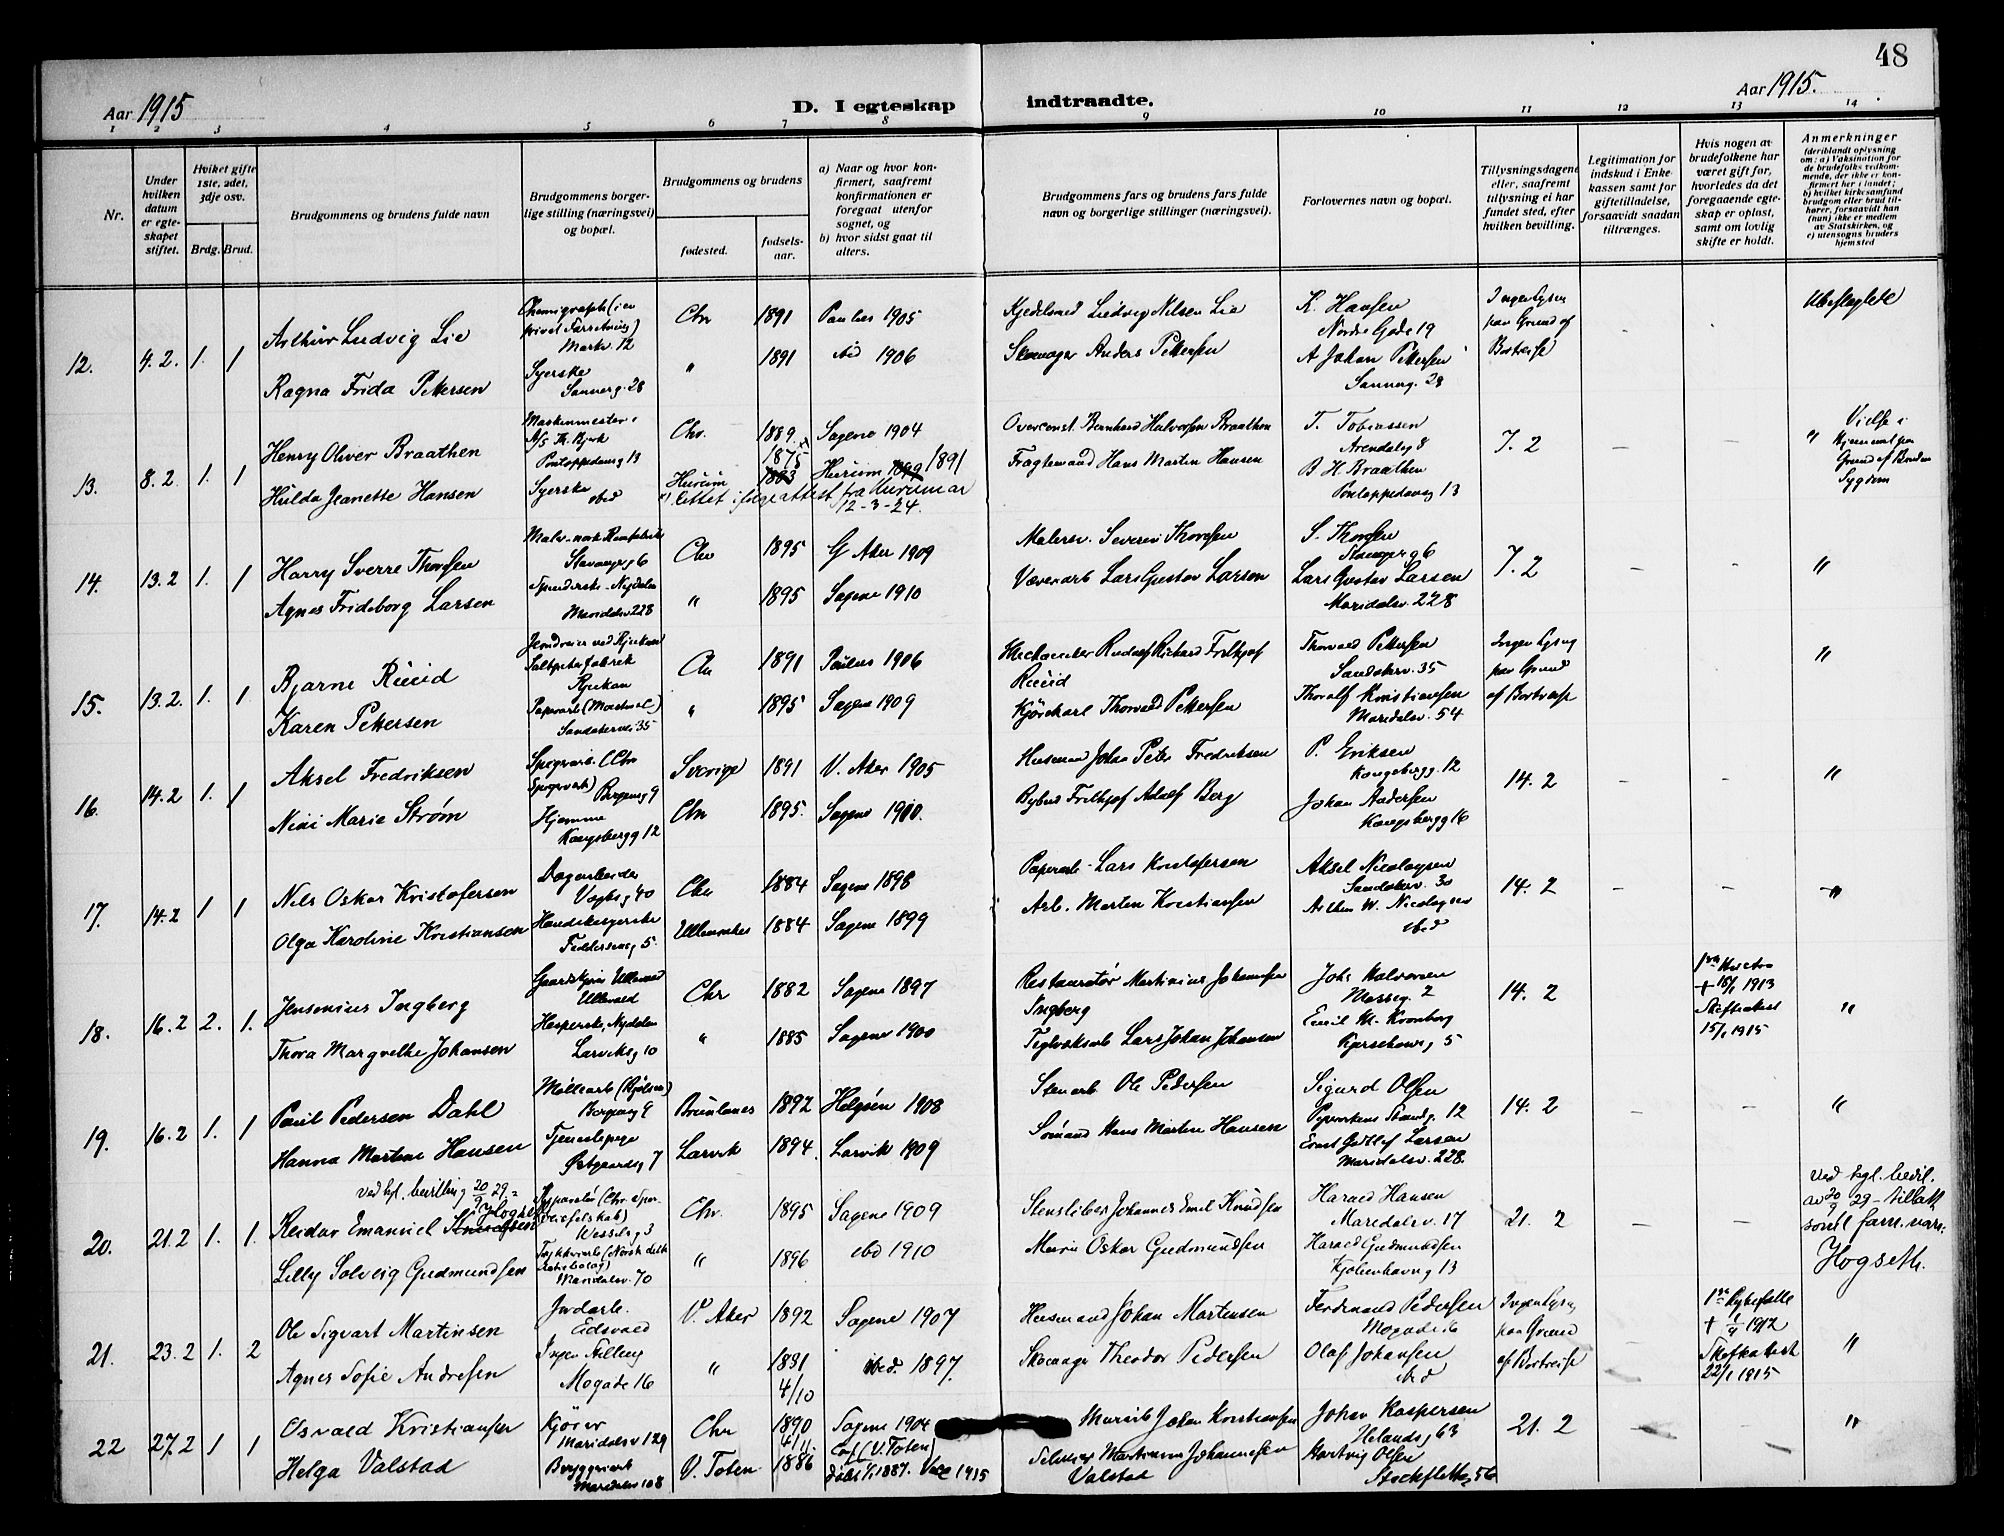 48
Aar 1915
D. I egteskap indtraadte.
Aar 1915.
1 2 3 4 5 6 7 8 9 10 11 12 13 14
Nr.
Under hvilken datum er egteskapet stiftet.
Hviket gifte 1ste, 2det, 3dje osv.
Brdg. Brud.
Brudgommens og brudens fulde navn
Brudgommens borgerlige stilling (næringsvei) og bopæl.
Brudgommens og brudens
fødested.
fødselsaar.
a) Naar og hvor konfirmert, saafremt konfirmationen er foregaat utenfor sognet, og
b) hvor sidst gaat til alters.
Brudgommens fars og brudens fars fulde navn og borgerlige stillinger (næringsvei).
Forlovernes navn og bopæl.
Tillysningsdagene eller, saafremt tillysning ei har fundet sted, efter hvilken bevilling.
Legitimation for indskud i Enkekassen samt for giftetilladelse, forsaavidt saadan tiltrænges.
Hvis nogen av brudefolkene har været gift for, hvorledes da det foregaaende egteskap er opløst, samt om lovlig skifte er holdt.
Anmerkninger
(deriblandt oplysning om: a) Vaksination for de brudefolks vedkommende, der ikke er konfirmert her i landet; b) hvilket kirkesamfund brudgom eller brud tilhører, forsaavidt han (hun) ikke er medlem av Statskirken, og c) utensogns bruders hjemsted
12. 4.2. 1. 1
Arthur Ludvig Lie
Markv. 12
Chr 1891 Paulus 1905
Kjedelsmed Ludvig Nilsen Lie
K. Hansen
Nordre Gade 19
Ingen lysn paa Grund af Bortreise
- -
Ubeslegtede
Ragna Frida Pettersen
Syerske
Sannerg. 28
" 1891 ibid 1906
Skomager Anders Pettersen
A Johan Pettersen
Sannerg. 28
13. 8.2. 1. 1
Henry Oliver Braathen
Maskinmester
Pontoppidansg 13
Chr. 1889 Sagene 1904
Bernhard Halvorsen Braathen
T. Tobiassen
Arendalsg 8
7. 2
- -
" Vielse i Hjemmet paa Grund af Brudens Sygdom
Hulda Jeanette Hansen
Syerske
ibid
Hurum 1875 1883 Hurum 1899 1891
x) Rettet i følge attest fra Hurum av 12-3-24.
Fragtemand Hans Martin Hansen
B H. Braathen
Pontoppidansg 13
14. 13.2 1. 1
Harry Sverre Thorsen
Stavangerg 6
Chr 1895 G Aker 1909
Malersv. Severin Thorsen
S. Thorsen
Stavangerg 6
7. 2
- -
"
Agnes Frideborg Larsen
Spinderske. Nydalen
Maridalsv. 228
" 1895 Sagene 1910
Væverarb Lars Gustav Larsen
Lars Gustav Larsen
Maridalsv. 228
15. 13.2. 1. 1
Bjarne Ruud
Saltpeterfabrik
Rjukan
Chr 1891 Paulus 1906
Rudolf Richard Fridhjof Ruud
Thorvald Pettersen
Sandakerv. 35
Ingen lysng paa Grund af Bortreise
- -
"
Karen Pettersen
Sandakervei 35
" 1895 Sagene 1909
Kjørekarl Thorvald Pettersen
Thoralf Kristiansen
Maridalsv. 54
16. 14.2 1. 1
Aksel Fredriksen
Bergensg 9
Sverige 1891 V. Aker 1905
Husmand Johan Peter Fredriksen
P. Eriksen
Kongsbergg. 12
14. 2
- -
"
Nini Marie Strøm
Hjemme
Kongsbergg 12
Chr 1895. Sagene 1910.
Bybud Fridhjof Adolf Berg
Johan Andersen
Kongsbergg 16
17. 14.2 1 1
Nils Oskar Kristofersen
Dagarbeider
Vogtsg 40
Chr 1884 Sagene 1898
Papirarb. Lars Kristofersen
Aksel Nicolaysen
Sandakerv. 30
14. 2
- -
"
Olga Karoline Kristiansen
Handskesyerske
Feddersensg 5.
Ullensaker 1884 Sagene 1899
Arb. Morten Kristiansen
Arthur W. Nicolaysen
ibid
18. 16.2 2. 1.
Jensenius Ingberg
Ullevaal
Chr 1882 Sagene 1897
Restauratør Martinius Johannesen Ingberg
Johs Halvorsen
Mosseg. 2
14. 2
-
1ste Hustru + 18/1 1913 Skifteattest 15/1 1915
"
Thora Margrethe Johansen
Hesperske, Nydalen
Larviksg 10
" 1885 Sagene 1900
Teglverksarb Lars Johan Johansen
Emil M. Kronborg
Kjerschowsg 5
19. 16.2 1. 1
Paul Pedersen Dahl
Møllearb (Bjølsen)
Bergensg 9
Brunlanes 1892 Helgøen 1908
Stenarb Ole Pedersen
Sigurd Olsen
Pipervikens Strandg. 12
14. 2
- -
"
Hanna Martine Hansen
Tjenestepige
Østgaardsg 7
Larvik 1894. Larvik 1909
Sømand Hans Martin Hansen
Ernst Gotlief Larsen
Maridalsv. 228.
20. 21.2 1. 1.
ved kgl. bevilling 20/9 29 =
Hogseth
Reidar Emanuel Knudsen
Wesselsg 3
Chr. 1895 Sagene 1909
Stensliber Johannes Emil Knudsen
Harald Hansen
Maridalsv. 17
21. 2
- -
Ved kgl. bevil. av 20/9 29 - tillatt som fam. navn: Hogseth.
Lilly Solveig Gudmundsen
Maridalsv. 70
" 1896 ibid 1910
Murer Oskar Gudmundsen
Harald Gudmundsen
Kjøbenhavnsg 13
21. 23.2 1. 2
Ole Sigvart Martinsen
Jordarb.
Eidsvold
V. Aker 1892 Sagene 1907
Husmand Johan Martinsen
Ferdinand Pedersen
Mogade 16
Ingen lysng paa Grund af Bortreise
-
+ 1/9 1912 Skifteattest 22/1 1915
"
Agnes Sofie Andresen
Ingen Stilling
Mogade 16
" 1881 4/10 ibid. 1897.
Skomager Theodor Pedersen
Olaf Johansen
ibid
22 27.2 1 1
Osvald Kristiansen
Kjører
Maridalsv 129
Chr 1890 4/11. Sagene 1904
Murarb Johan Kristiansen
Johan Kaspersen
Helandsg 63
21. 2
- -
"
Helga Valstad
Bryggeriarb
Maridalsv 108
V. Toten 1886
Martinius Johannesen Valstad
Hartvig Olsen
Stockflethsg 56